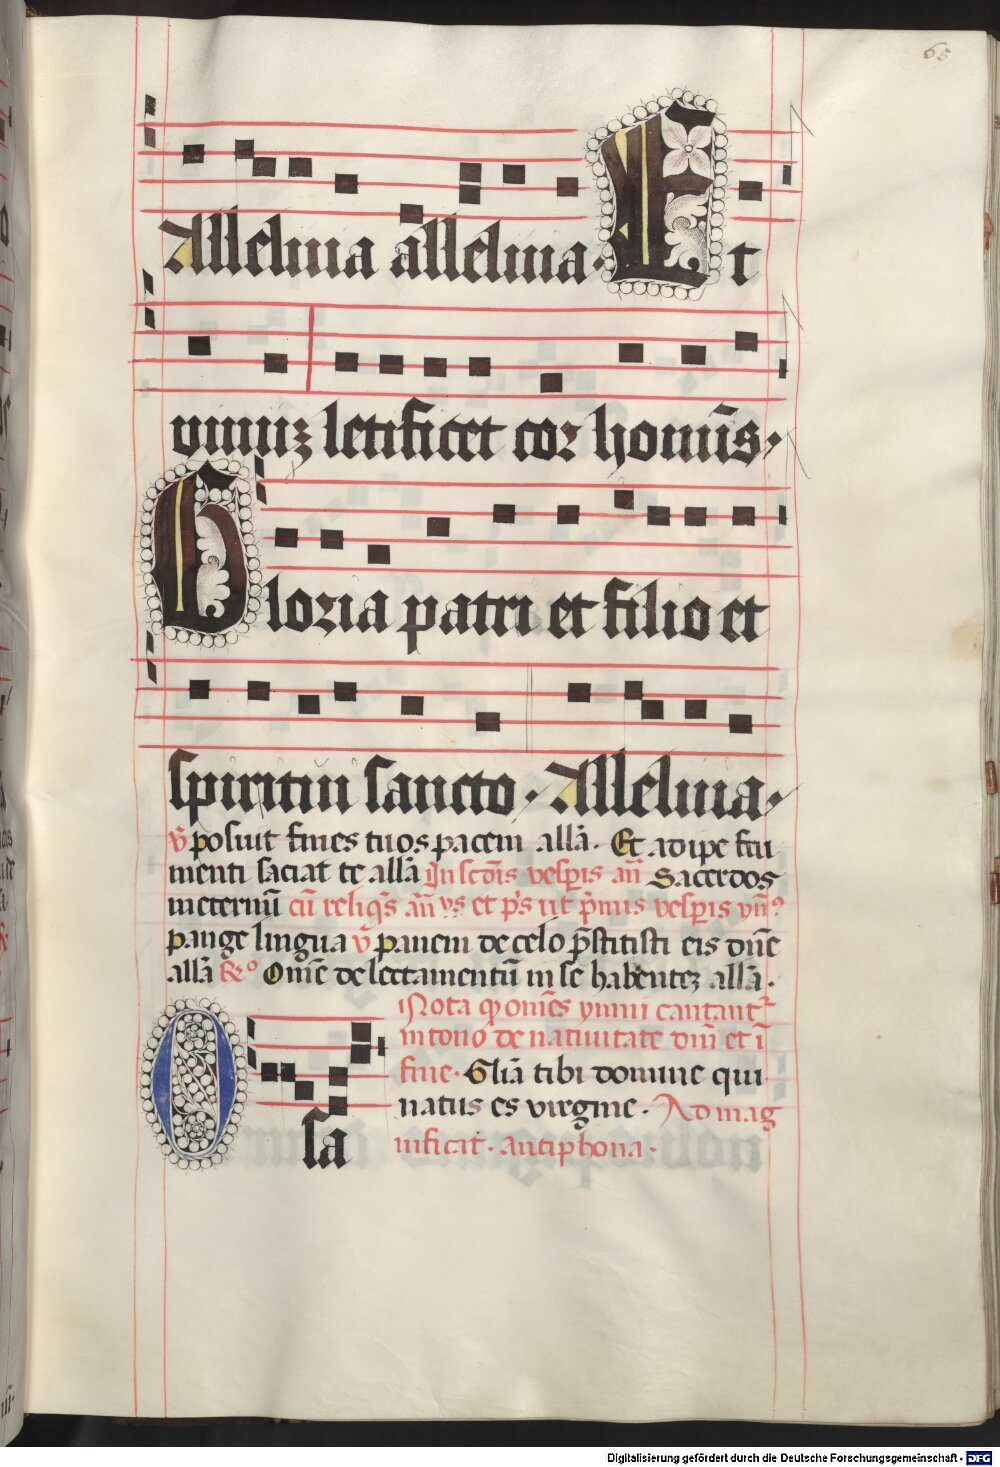 65
Alleluia alleluia. Et
vinuꝫ letificet cor homīs.
Gloria patri et filio et
spiritui sancto. Alleluia.
V̄ posuit fines tuos pacem allā. Et adipe fru
menti saciat te allā In scd̄is vesp̄is añ Sacerdos
in eternū cū reliq̄s añys et p̄s ut p̄mis vesp̄is ym̄ꝰ
pange lingua v̄ panem de celo p̄stitisti eis dn̄e
allā Omē delectamentū in se habenteꝫ allā.
Nota ꝙ om̄es ymni cantant᷑
in tono de nativitate dn̄i et ī
fine. Glīa tibi domine qui
natus es virgine. Ad mag
nificat. antiphona.
O sa
Digitalisierung gefördert durch die Deutsche Forschungsgemeinschaft - DFG